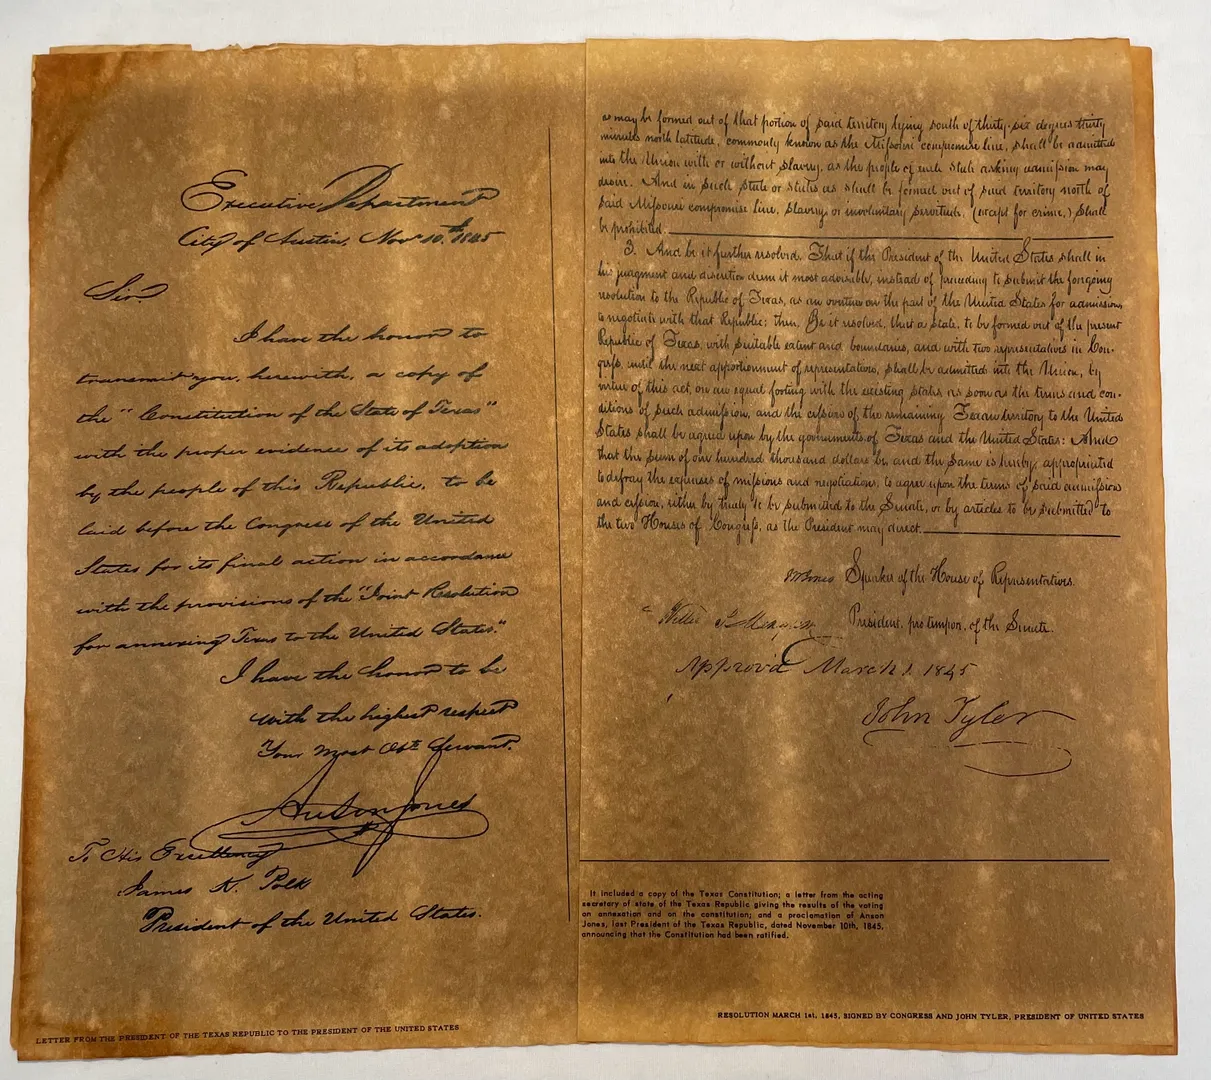 Executive Department
City of Austin, Nov 10th 1845
Sir
I have the honor to
transmit you, herewith, a copy of
the "Constitution of the State of Texas"
with the proper evidence of its adoption
by the people of this Republic, to be
laid before the Congress of the United
States for its final action in accordance
with the provisions of the "Joint Resolution
for annexing Texas to the United States."
I have the honor to be
with the highest respect
Your Most Obt. Servant.
Anson Jones
To His Excellency
James K. Polk
President of the United States.
LETTER FROM THE PRESIDENT OF THE TEXAS REPUBLIC TO THE PRESIDENT OF THE UNITED STATES
as may be formed out of that portion of said territory lying south of thirty-six degrees thirty
minutes north latitude, commonly known as the Missouri compromise line, shall be admitted
into the Union with or without slavery, as the people of each state asking admission may
desire. And in such state or states as shall be formed out of said territory north of
said Missouri compromise line, slavery, or involuntary servitude, (except for crime,) shall
be prohibited.
3. And be it further resolved, That if the President of the United States shall in
his judgment and discretion deem it most advisable, instead of proceeding to submit the foregoing
resolution to the Republic of Texas, as an overture on the part of the United States for admission,
to negotiate with that Republic; then, Be it resolved, that a state, to be formed out of the present
Republic of Texas, with suitable extent and boundaries, and with two representatives in Con-
gress, until the next apportionment of representation, shall be admitted into the Union, by
virtue of this act, on an equal footing with the existing states as soon as the terms and con-
ditions of such admission, and the cession of the remaining Texan territory to the United
States shall be agreed upon by the governments of Texas and the United States: And
that the sum of one hundred thousand dollars be, and the same is hereby, appropriated
to defray the expenses of missions and negotiations, to agree upon the terms of said admission
and cession, either by treaty to be submitted to the Senate, or by articles to be submitted to
the two Houses of Congress, as the President may direct.
JW Jones Speaker of the House of Representatives.
Willie P. Mangum President, pro tempore, of the Senate.
Approv'd March 1. 1845
John Tyler
It included a copy of the Texas Constitution; a letter from the acting
secretary of state of the Texas Republic giving the results of the voting
on annexation and on the constitution; and a proclamation of Anson
Jones, last President of the Texas Republic, dated November 10th, 1845,
announcing that the Constitution had been ratified.
RESOLUTION MARCH 1st, 1845, SIGNED BY CONGRESS AND JOHN TYLER, PRESIDENT OF UNITED STATES